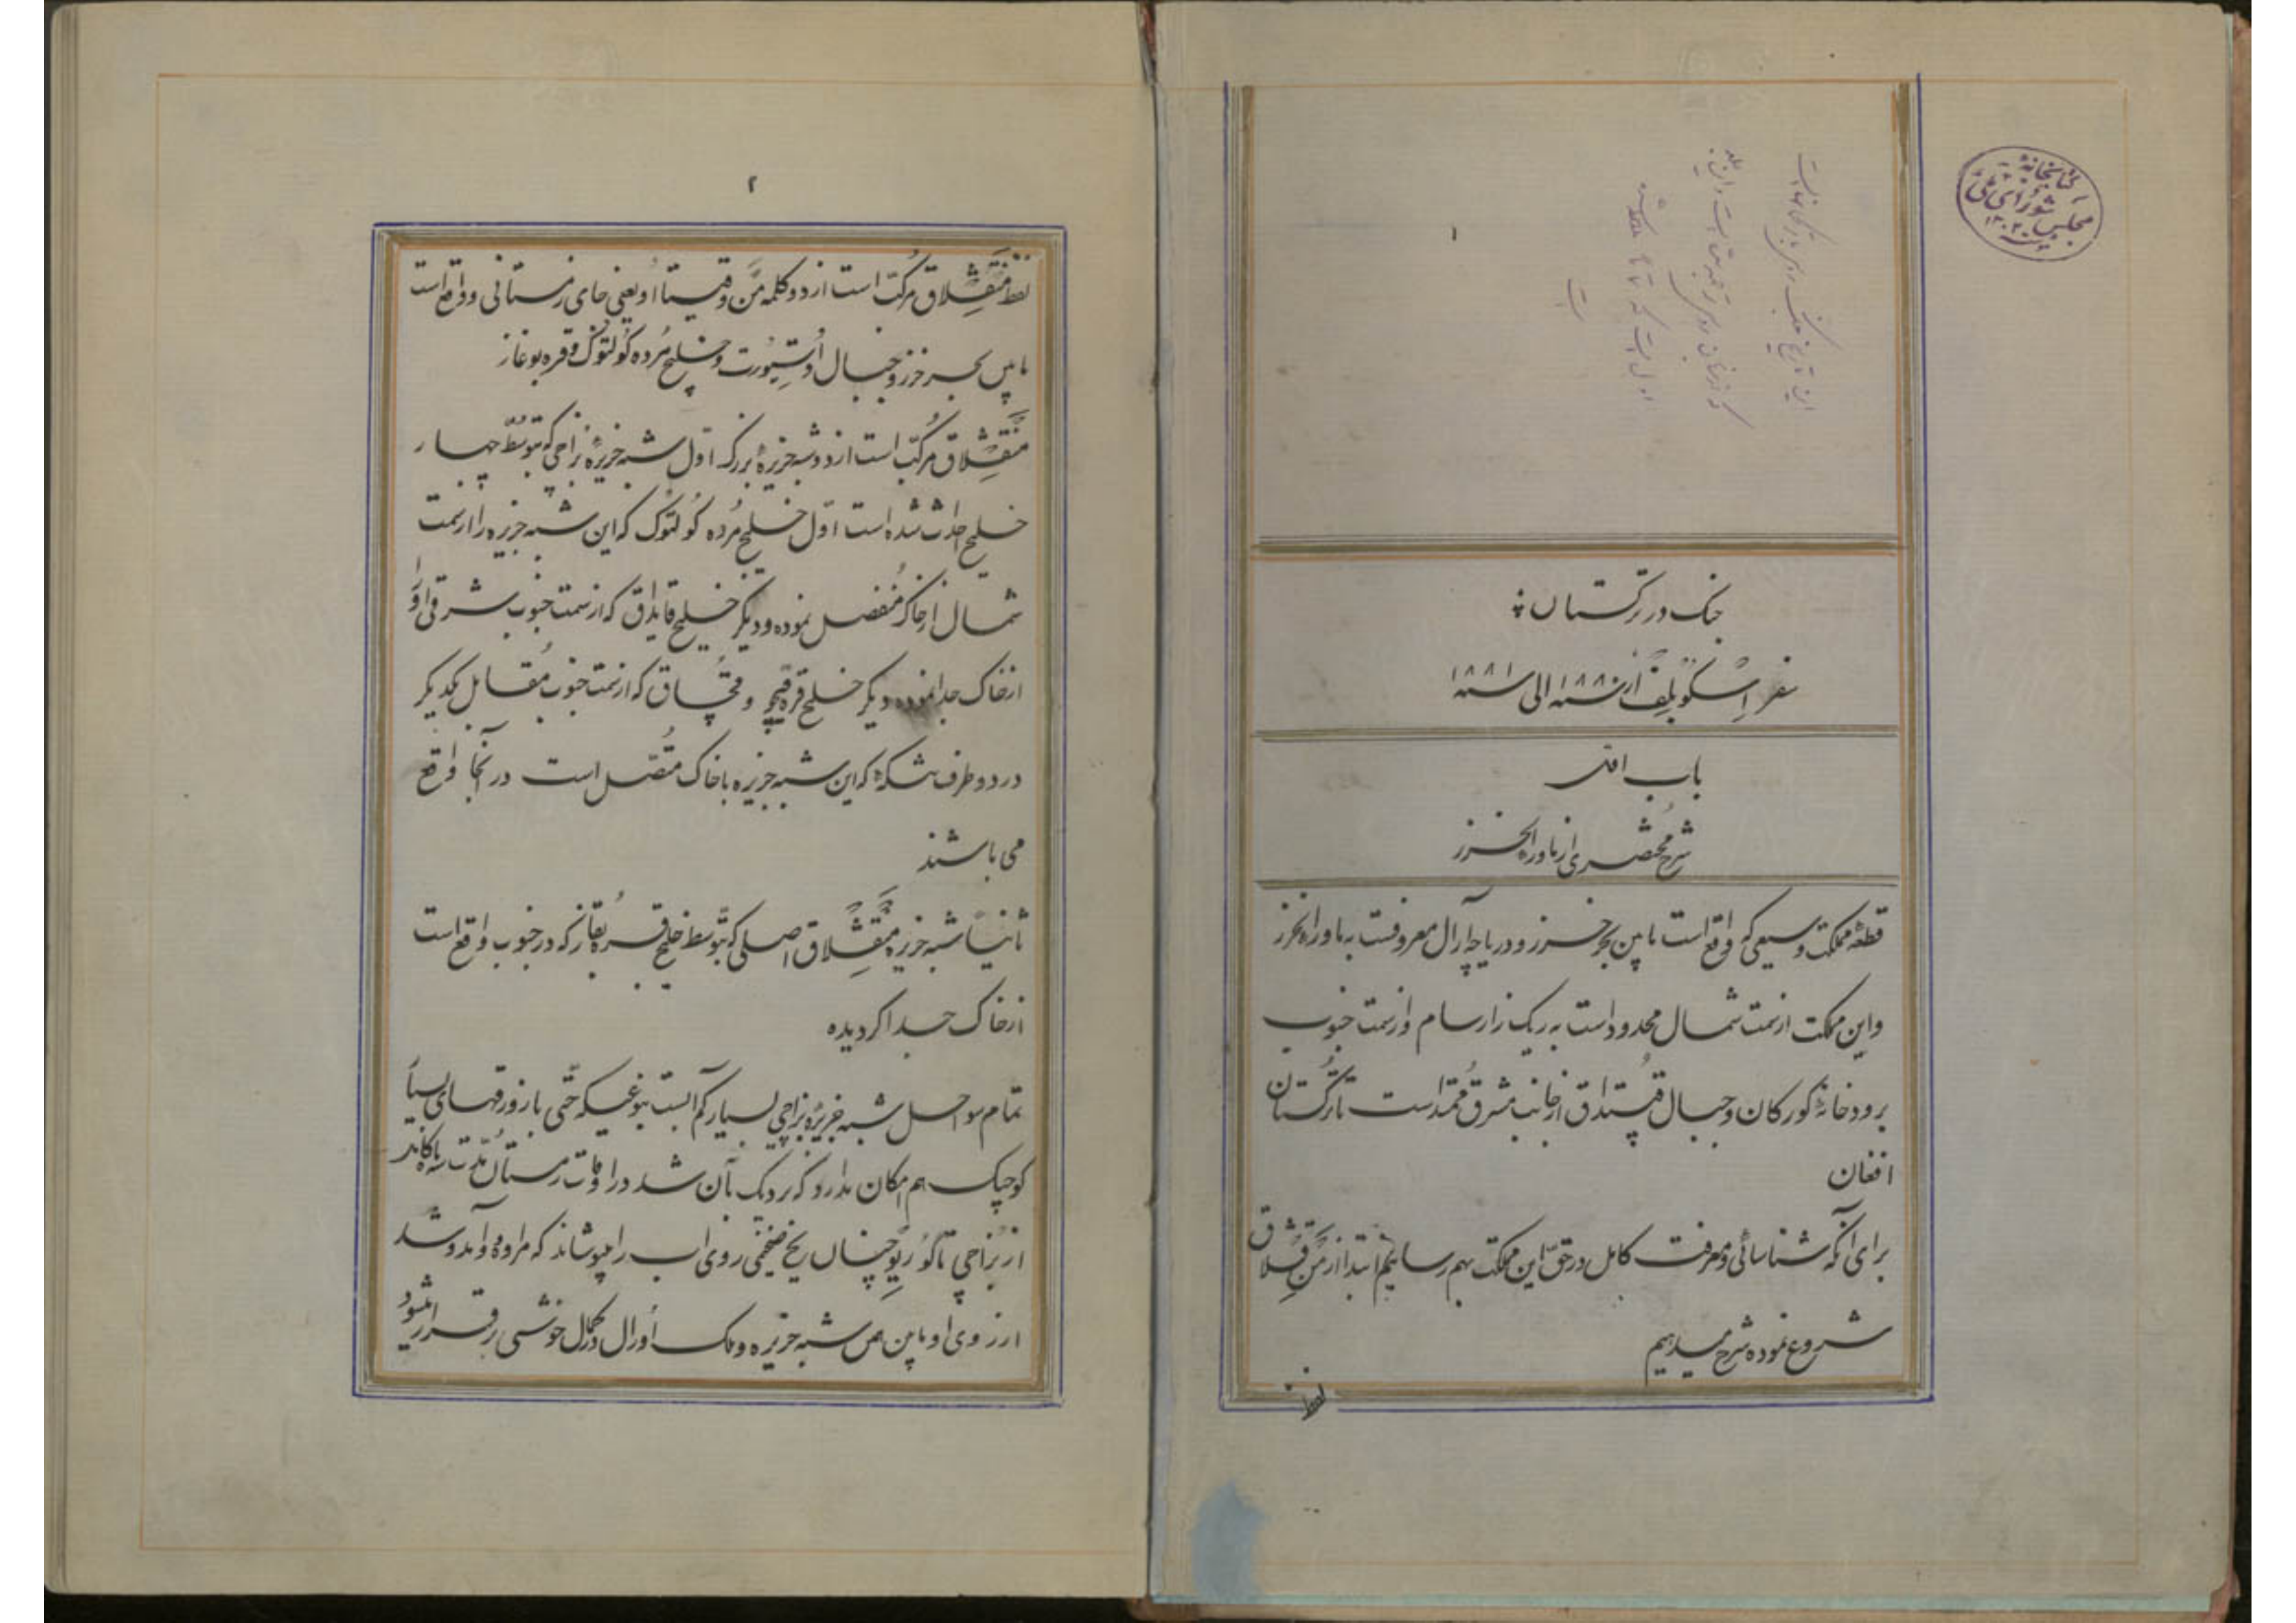 کتابخانهٔ
مجلس شورای ملی
۱
این تاریخ جنگ روس
جنگ در ترکستان
سفر اسکوبلف از سنه ۱۸۸۰ الی سنه ۱۸۸۱
باب اول
شرح مختصری از ماوراء الخزر
قطعهٔ مملکت وسیعی که واقع است مابین بحر خزر و دریاچه آرال معروفست به ماوراء الخزر
و این مملکت از سمت شمال محدود است به ریک زار سام و از سمت جنوب
برودخانهٔ کورکان و جبال قپتداق از جانب مشرق ممتد است تا ترکستان
افغان
برای آنکه شناسائی و معرفت کامل در حق این مملکت بهم رسانیم ابتدا از من قشلاق
شروع نموده شرح میدهیم
لفظ
۲
لفظ منقشلاق مرکب است از دو کلمه من و قیشتااو یعنی جای زمستانی و واقع است
مابین بحر خزر و جبال اوستیورت و خلیج مرده کولتوک و قره بوغاز
منقشلاق مرکب است از دو شبه جزیرهٔ بزرک اول شبه جزیرهٔ بزاچی که بتوسط چهار
خلیج احداث شده است اول خلیج مرده کولتوک که این شبه جزیره را از سمت
شمال از خاک منفصل نموده و دیکر خلیج قایداق که از سمت جنوب شرقی او را
از خاک جدا نموده و دیکر خلیج قره قیچو و قچاق که از سمت جنوب مقابل یکدیکر
در دو طرف تنکهٔ که این شبه جزیره با خاک متصل است در آنجا واقع
می باشند
ثانیاً شبه جزیرهٔ منقشلاق اصلی که بتوسط خلیج قره بقاز که در جنوب واقع است
از خاک جدا کردیده
تمام سواحل شبه جزیرهٔ بزاچی بسیار کم آبست بنوعیکه حتی با زورقهای بسیار
کوچک هم امکان ندارد که نزدیک بآن شد در اوقات زمستان مدت سه ماه
از بزاچی تا کوریو چنان یخ ضخیمی روی اب را میپوشاند که مراوده و آمد و شد
از روی او مابین این شبه جزیره و ملک اورال در کمال خوشی برقرار میشود